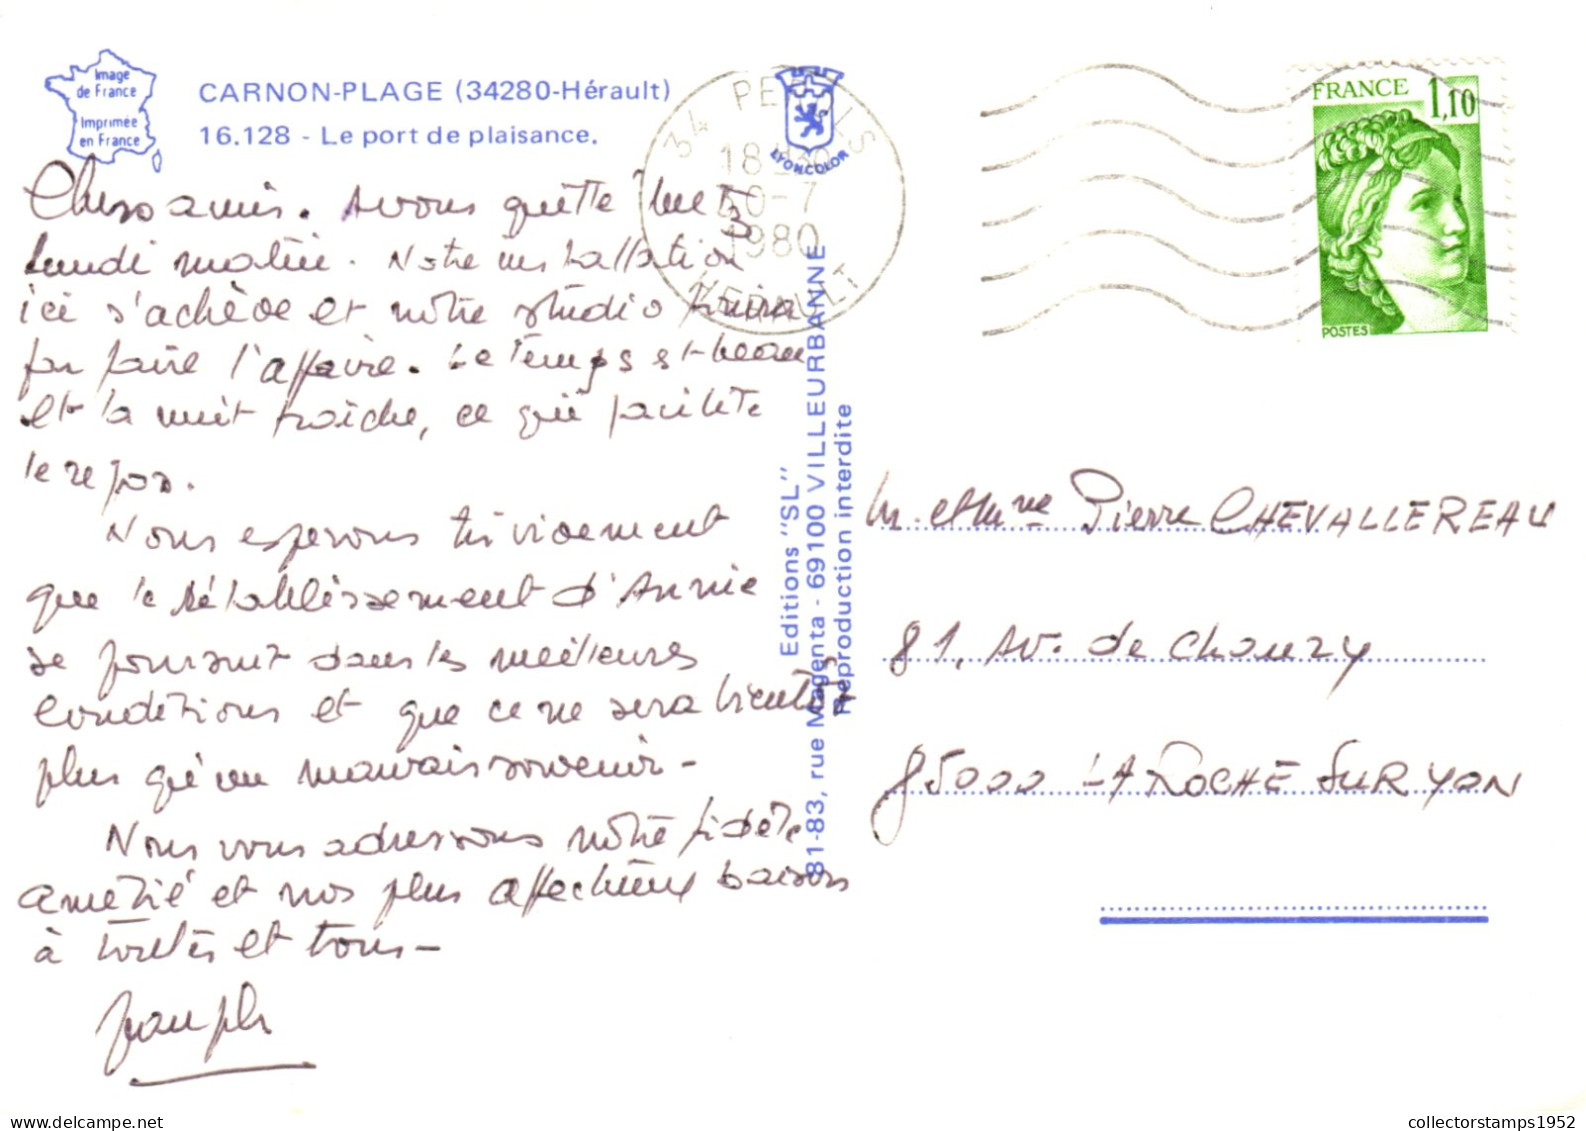 Image
de France
Imprimée
en France
CARNON-PLAGE (34280-Hérault)
16.128 - Le port de plaisance.
Chers amis. Avons quitté Metz
lundi matin. Notre installation
ici s'achève et notre studio finira
par faire l'affaire. Le temps est beau
et la nuit fraîche, ce qui facilite
le repos.
Nous esperons très vivement
que le rétablissement d'Annie
se poursuit dans les meilleures
conditions et que ce ne sera bientôt
plus qu'un mauvais souvenir -
Nous vous adressons notre fidèle
amitié et nos plus affectueux baisers
à toutes et tous -
34 PEROLS
18 H 30
30-7
1980
HERAULT
LYONCOLOR
Editions "SL"
81-83, rue Magenta - 69100 VILLEURBANNE
Reproduction interdite
FRANCE
1,10
POSTES
M. et Mme Pierre CHEVALLEREAU
81, Av. de Chanzy
85000 LA ROCHE SUR YON
collectorstamps1952